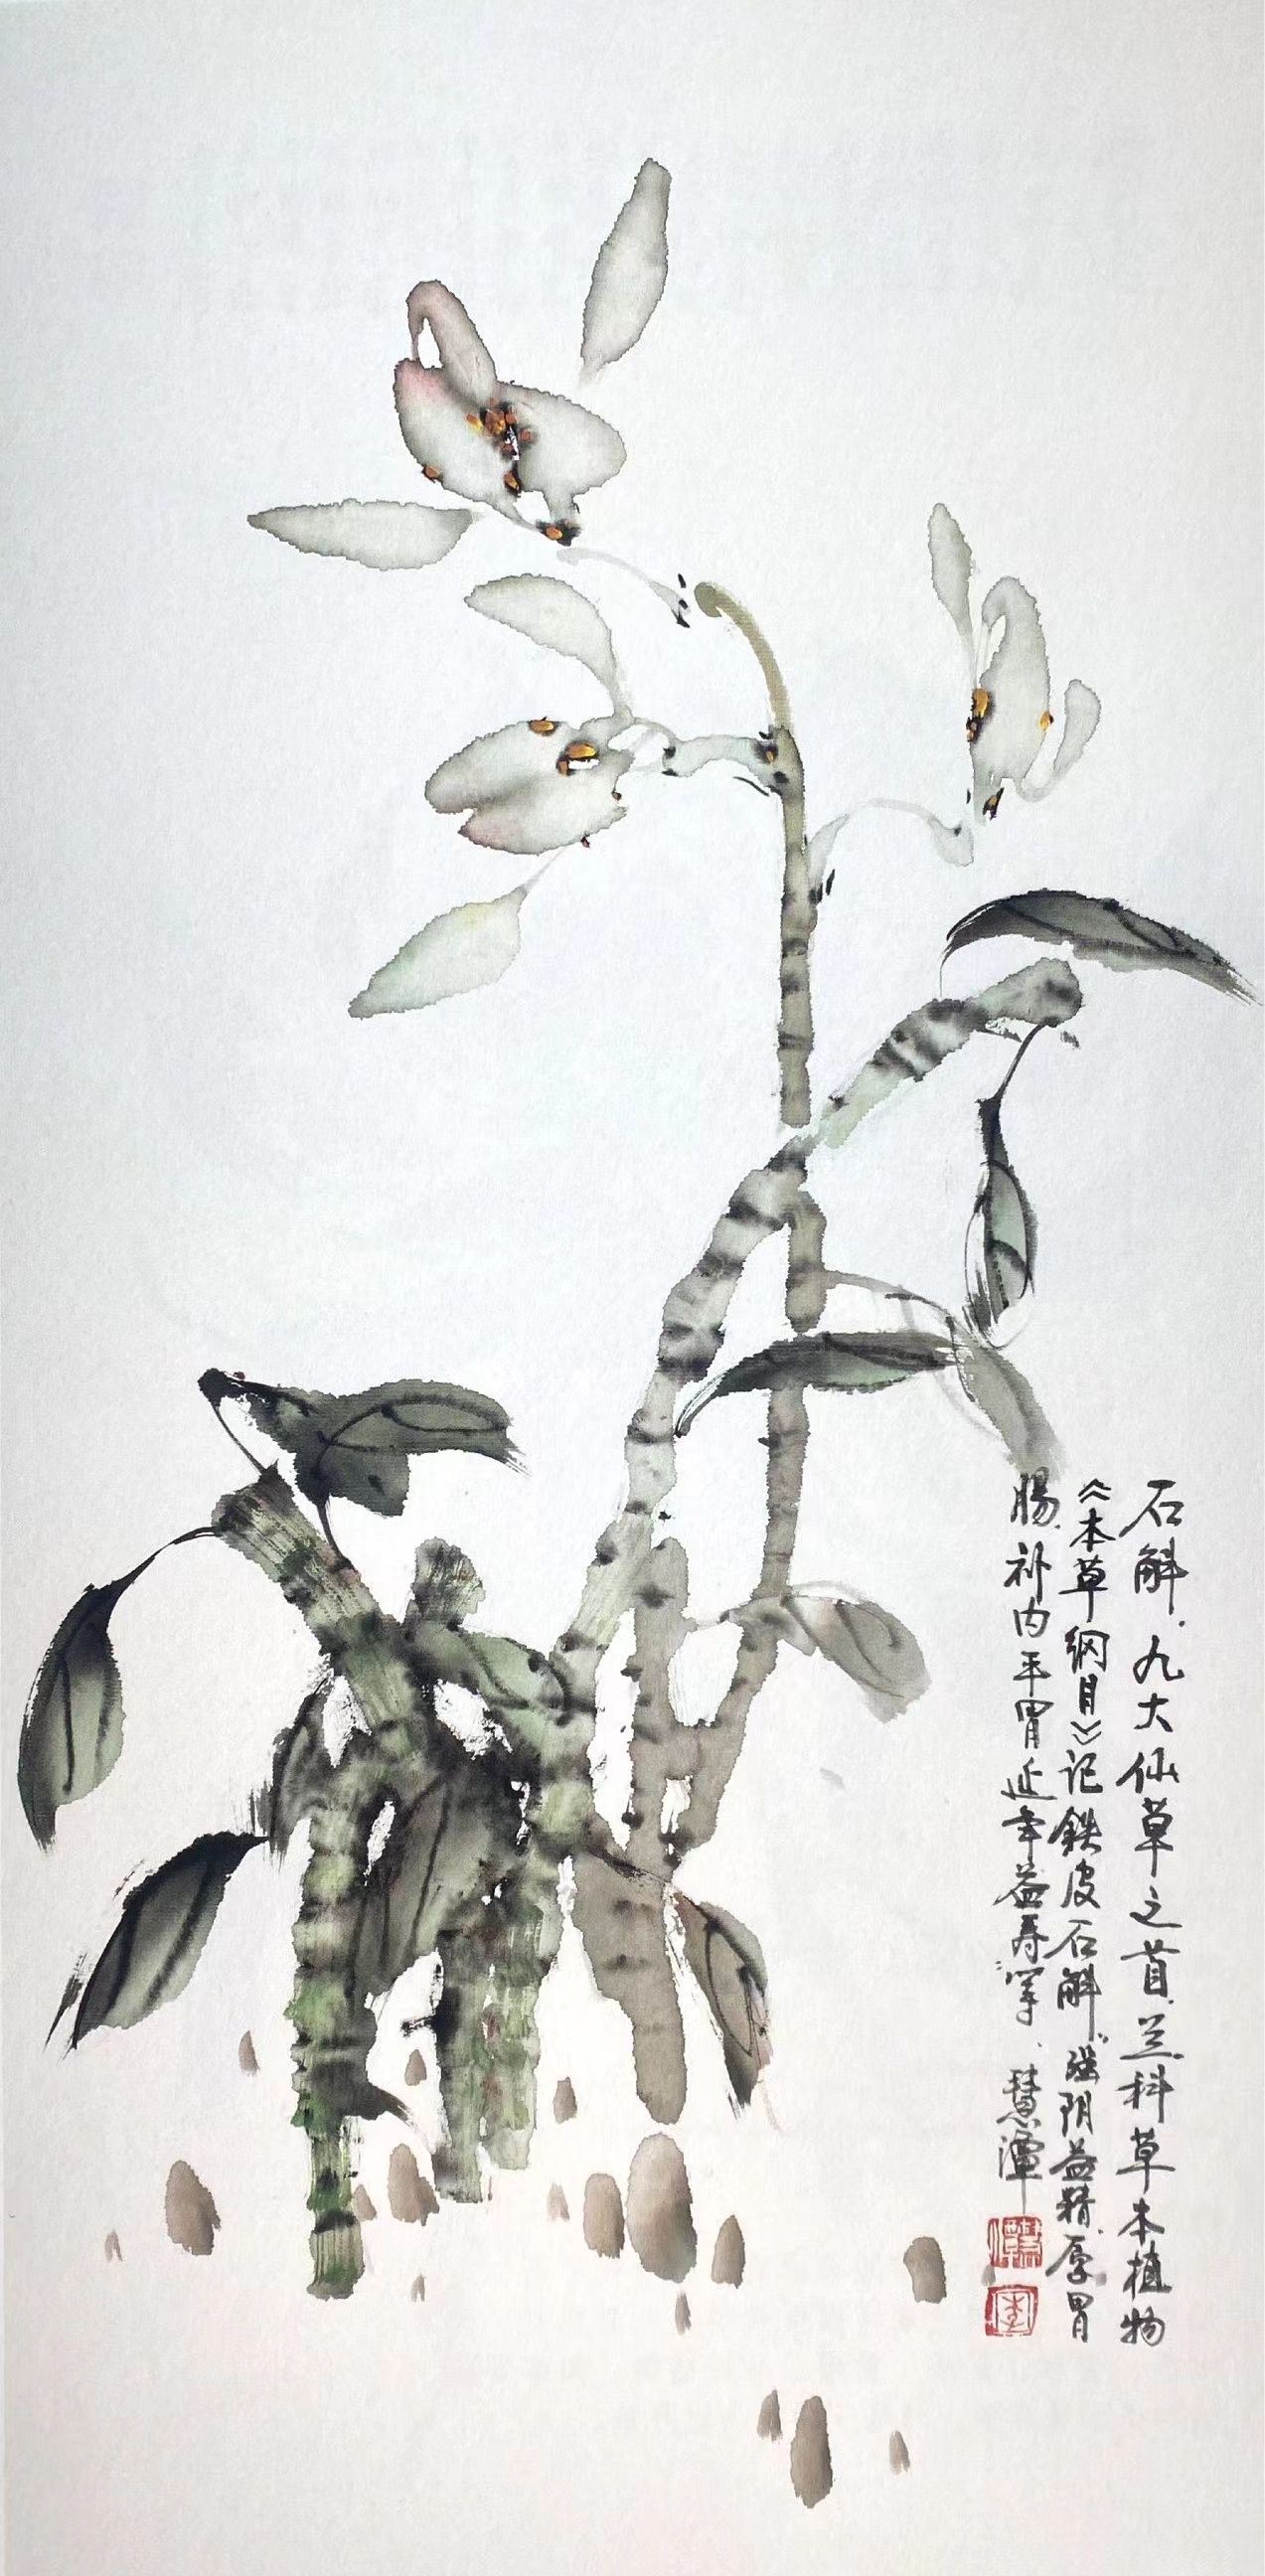 石斛.九大仙草之首.兰科草本植物
《本草纲目》记鉄皮石斛.强阴益精.厚胃
肠.补内平胃延年益寿等、慧潭
慧潭
李